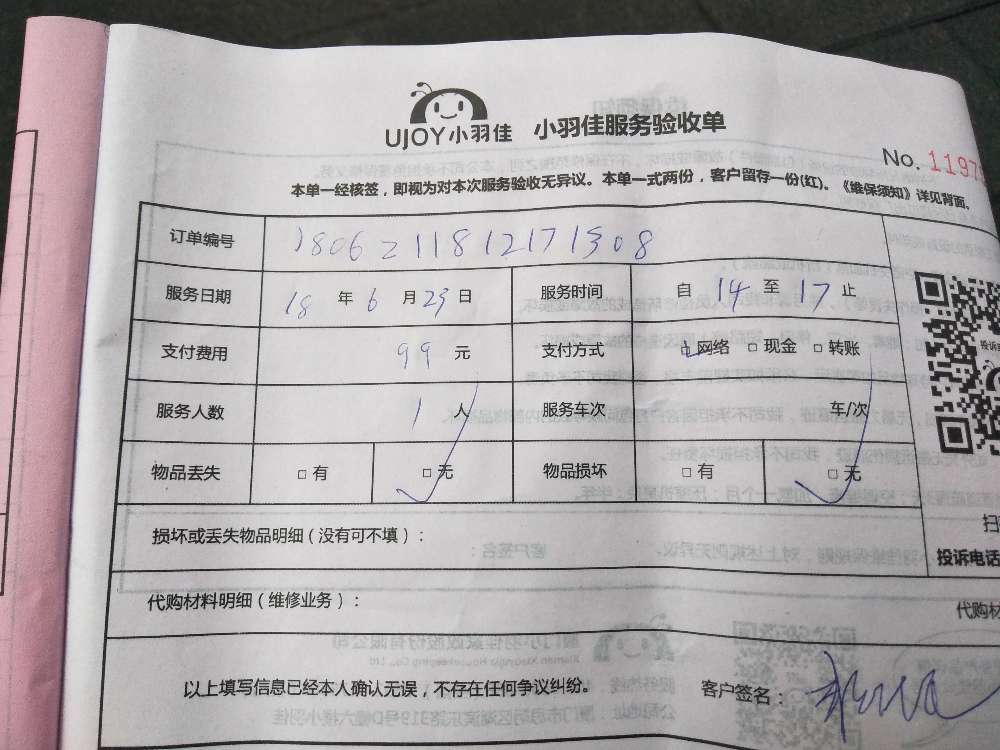 UJOY小羽佳 小羽佳服务验收单
No. 11976
本单一经核签，即视为对本次服务验收无异议。本单一式两份，客户留存一份(红)。《维保须知》详见背面。
订单编号 1806211812171308
服务日期 18 年 6 月 23 日 服务时间 自 14 至 17 止
支付费用 99 元 支付方式 □网络 □现金 □转账
服务人数 1 人 服务车次 车/次
物品丢失 □有 □无 物品损坏 □有 □无
损坏或丢失物品明细(没有可不填)：
扫
投诉电话
代购材料明细(维修业务)：
代购材
以上填写信息已经本人确认无误，不存在任何争议纠纷。 客户签名：